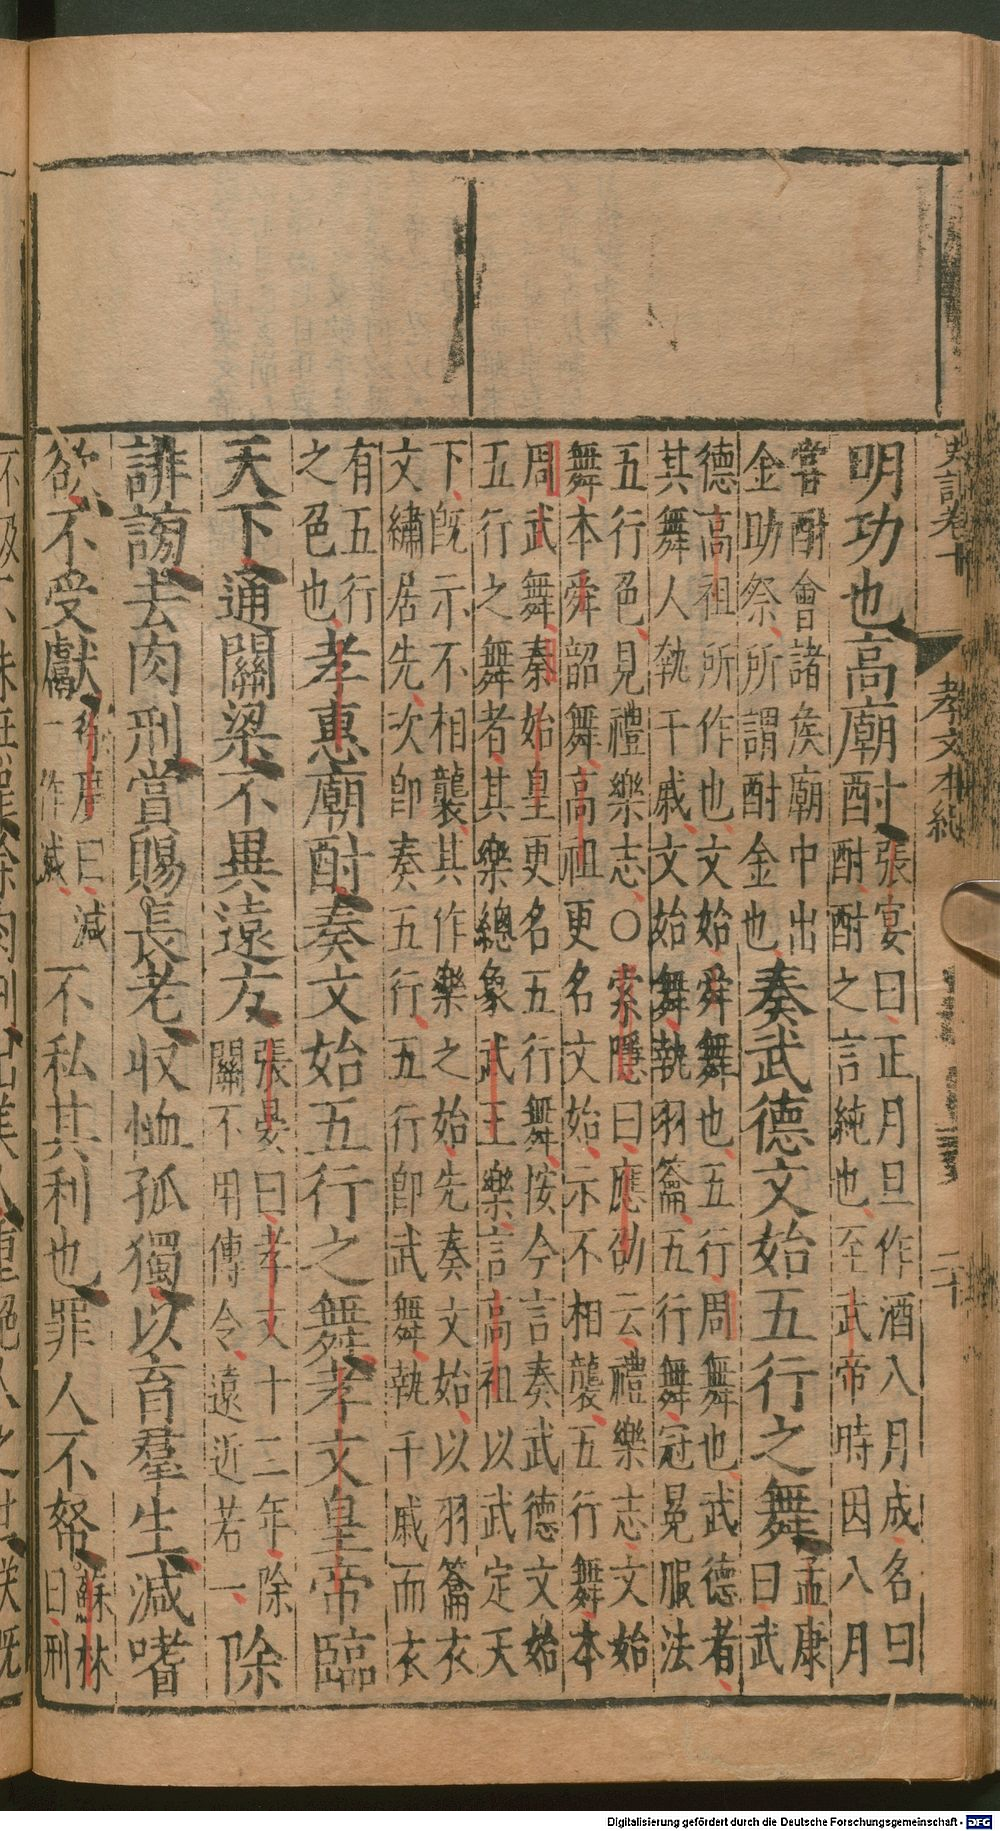 史記卷十
孝文本紀
二十
明功也高廟酎張宴曰正月旦作酒八月成名曰
酎酎之言純也至武帝時因八月
嘗酎會諸侯廟中出
金助祭所謂酎金也奏武德文始五行之舞孟康
曰武
德高祖所作也文始舜舞也五行周舞也武德者
其舞人執干戚文始舞執羽籥五行舞冠冕服法
五行色見禮樂志○索隱曰應劭云禮樂志文始
舞本舜韶舞高祖更名文始示不相襲五行舞本
周武舞秦始皇更名五行舞按今言奏武德文始
五行之舞者其樂總象武王樂言高祖以武定天
下旣示不相襲其作樂之始先奏文始以羽籥衣
文繡居先次卽奏五行五行卽武舞執干戚而衣
有五行
之色也孝惠廟酎奏文始五行之舞孝文皇帝臨
天下通關梁不異遠方張晏曰孝文十二年除
關不用傳令遠近若一除
誹謗去肉刑賞賜長老收恤孤獨以育羣生減嗜
欲不受獻徐廣曰減
一作滅不私其利也罪人不帑蘇林
曰刑
Digitalisierung gefördert durch die Deutsche Forschungsgemeinschaft - DFG